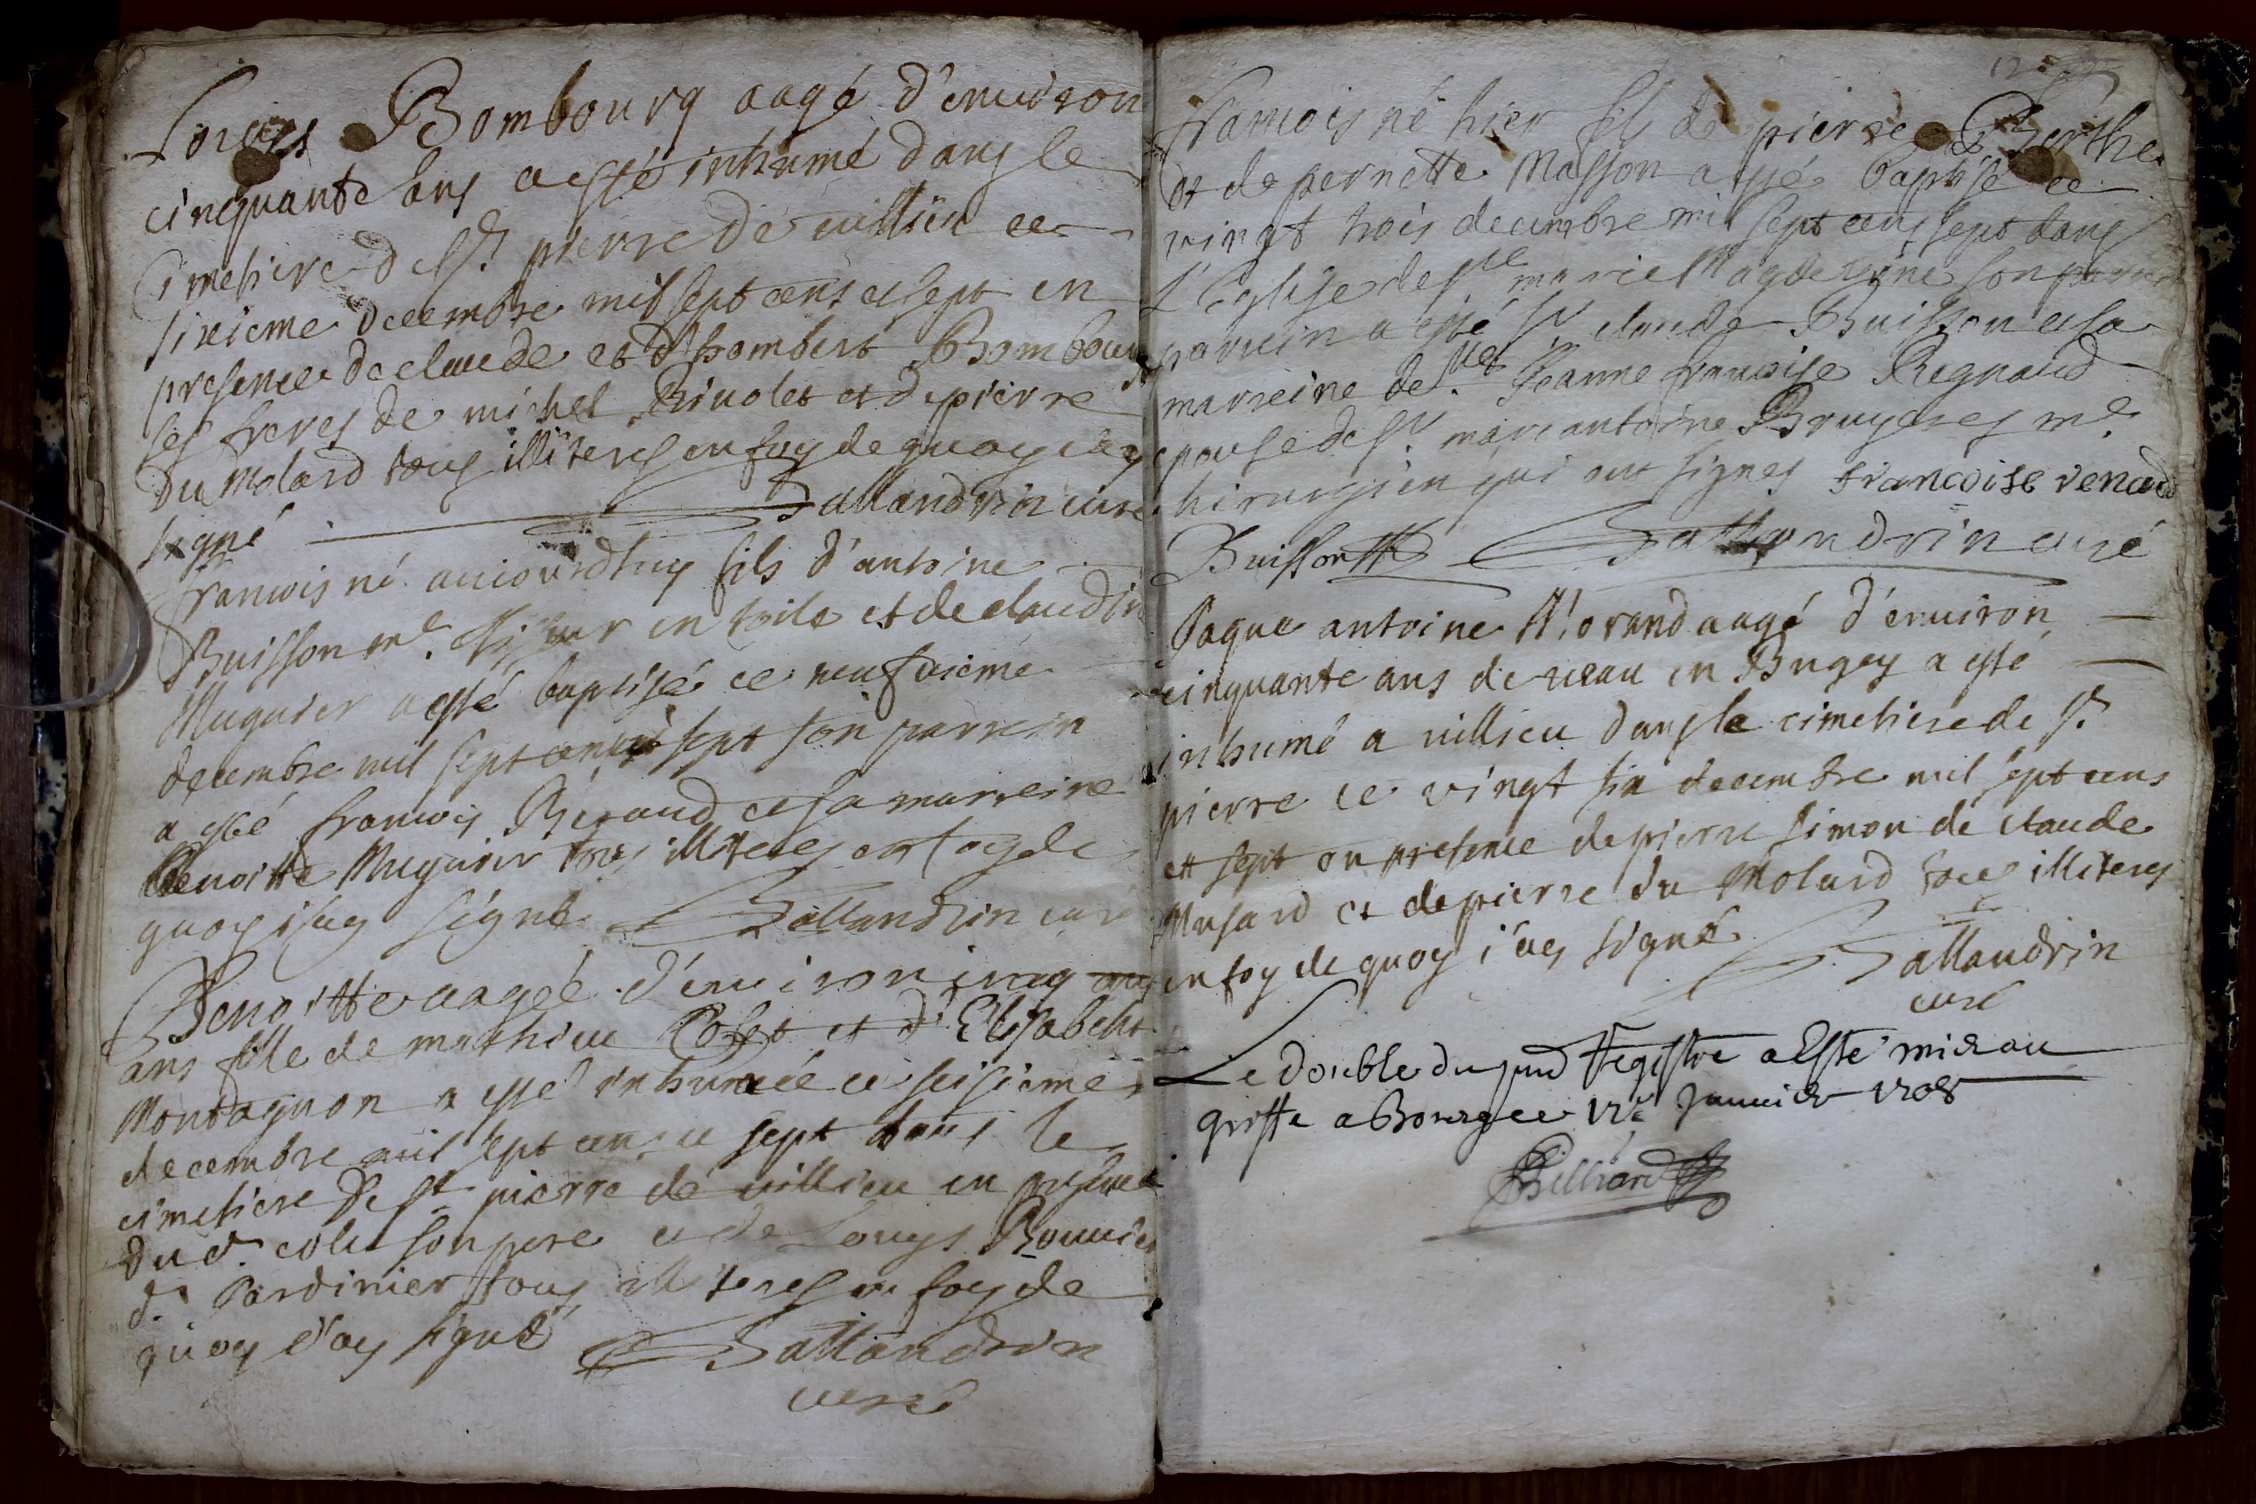 Louys Bombourg aagé d'enuiron
cinquante ans a esté inhumé dans le
Cimetiere de St. pierre de uillieu ce
sixieme decembre mil sept cens et sept en
presence de claude et d'hombert Bombourg
ses freres de michel Riuolet et de pierre
du Molard tous illiteres en foy de quoy i'ay
signé Sallandrin curé
francois né auiourdhuy fils d'antoine
Buisson me. Tisseur en toile et de claudine
Muguier a esté baptisé ce neufuieme
decembre mil sept cens sept son parrein
a esté francois Beraud et sa marreine
Benoitte Muguier tous illiteres en foy de
quoy i'ay signé Sallandrin curé
Benoitte aagée d'enuiron cinq
ans fille de mathieu Colet et d'Elisabeth
Montagnon a esté inhumée ce seisieme
decembre mil sept cens et sept dans le
cimetiere de St. pierre de uillieu en presence
dud. colet son pere et de Louys Bouuier
d. Jardinier tous illiteres en foy de
quoy i'ay signé Sallandrin
curé
francois né hier fils de pierre Berthe
et de pernette Masson a esté baptisé ce
vingt trois decembre mil sept cens sept dans
l'Eglise de Ste marie Magdeleine son
parrein a esté Sr claude Buisson et sa
marreine delle. Jeanne francoise Regnaud
epouse de Sr. marc antoine Bruyeres me.
chirurgien qui ont signes francoise renaud
Buisson Sallandrin curé
Jaque antoine Morand aagé d'enuiron
cinquante ans de ueau en Bugey a esté
inhumé a uillieu dans le cimetiere de St.
pierre ce vingt six decembre mil sept cens
et sept en presence de pierre simon de claude
Musard et de pierre du Molard tous illiteres
en foy de quoy i'ay signé Sallandrin
curé
Le double du pnt Registre a Esté mis au
greffe a Bourg ce 12e Januier 1708
Billiard